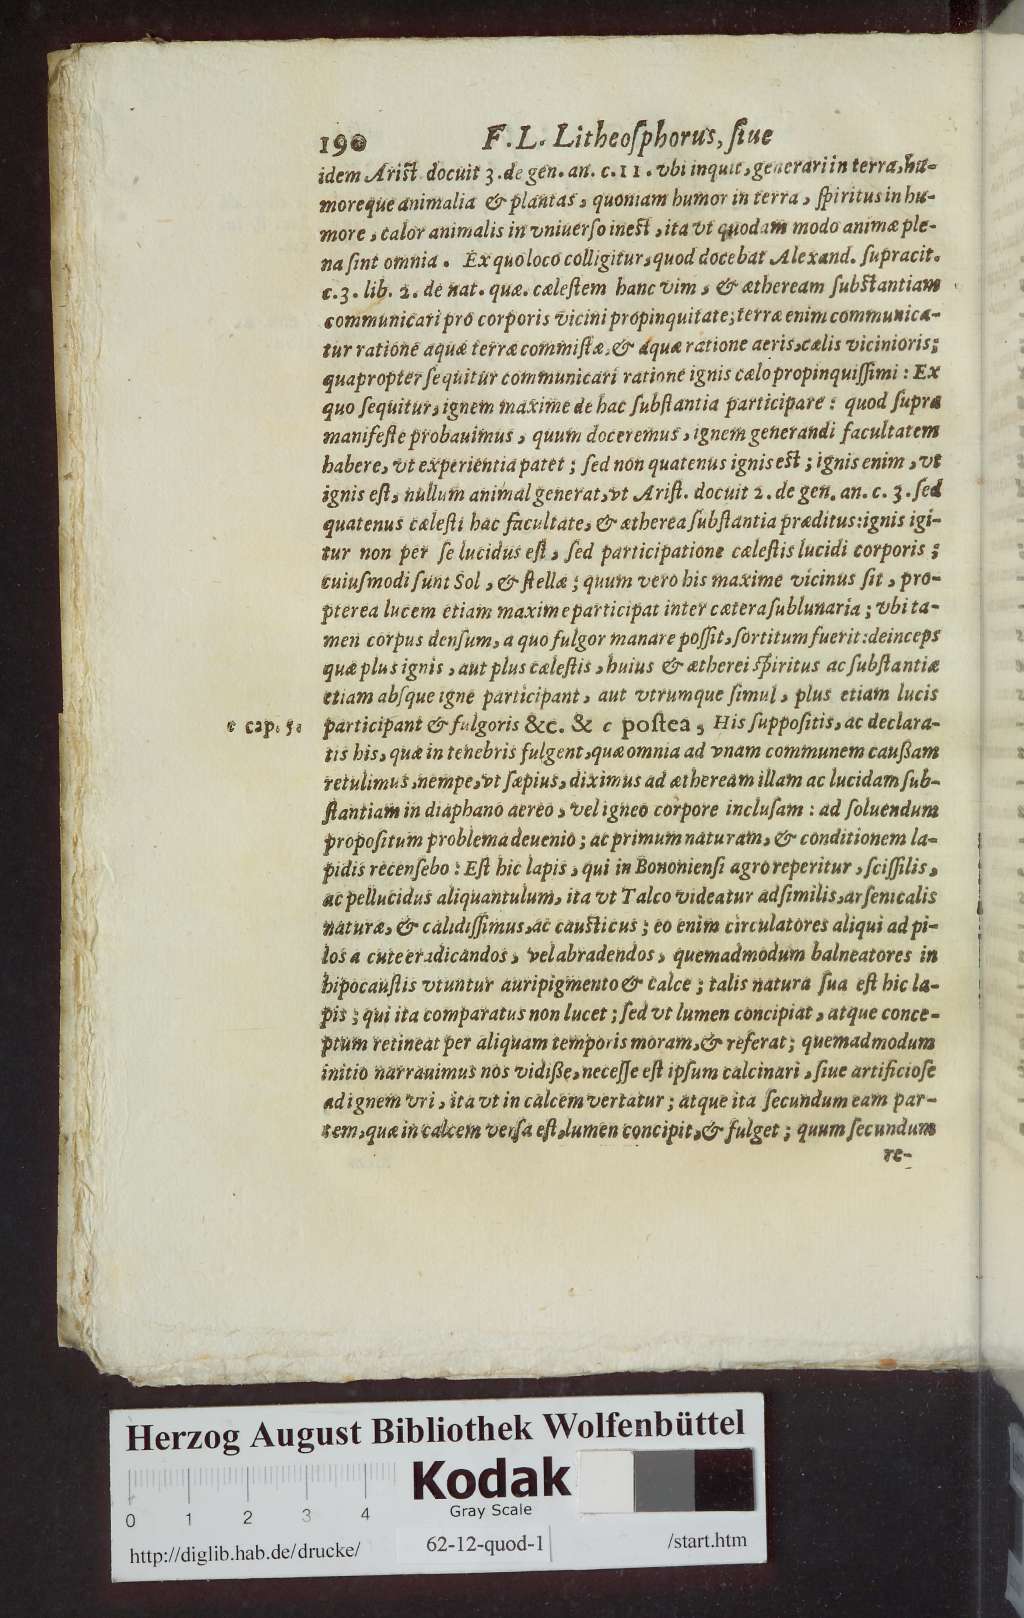 190 F. L. Litheoſphorus, ſiue
idem Ariſt. docuit 3. de gen. an. c. 11. vbi inquit, generari in terra, hu-
moreque animalia & plantas, quoniam humor in terra, ſpiritus in hu-
more, calor animalis in vniuerſo ineſt, ita vt quodam modo animæ ple-
na ſint omnia. Ex quo loco colligitur, quod docebat Alexand. ſupracit.
c. 3. lib. 2. de nat. quæ. cæleſtem hanc vim, & ætheream ſubſtantiam
communicari pro corporis vicini propinquitate; terræ enim communica-
tur ratione aquæ terræ commiſtæ, & aquæ ratione aeris, cælis vicinioris;
quapropter ſequitur communicari ratione ignis cælo propinquiſſimi: Ex
quo ſequitur, ignem maxime de hac ſubſtantia participare: quod ſupra
manifeſte probauimus, quum doceremus, ignem generandi facultatem
habere, vt experientia patet; ſed non quatenus ignis eſt; ignis enim, vt
ignis eſt, nullum animal generat, vt Ariſt. docuit 2. de gen. an. c. 3. ſed
quatenus cæleſti hac facultate, & ætherea ſubſtantia præditus: ignis igi-
tur non per ſe lucidus eſt, ſed participatione cæleſtis lucidi corporis;
cuiuſmodi ſunt Sol, & ſtellæ; quum vero his maxime vicinus ſit, pro-
pterea lucem etiam maxime participat inter cætera ſublunaria; vbi ta-
men corpus denſum, a quo fulgor manare poſſit, ſortitum fuerit: deinceps
quæ plus ignis, aut plus cæleſtis, huius & ætherei ſpiritus ac ſubſtantiæ
etiam abſque igne participant, aut vtrumque ſimul, plus etiam lucis
c cap. 5. participant & fulgoris &c. & c poſtea, His ſuppoſitis, ac declara-
tis his, quæ in tenebris fulgent, quæ omnia ad vnam communem cauſſam
retulimus, nempe, vt ſæpius, diximus ad ætheream illam ac lucidam ſub-
ſtantiam in diaphano aereo, vel igneo corpore incluſam: ad ſoluendum
propoſitum problema deuenio; ac primum naturam, & conditionem la-
pidis recenſebo: Eſt hic lapis, qui in Bononienſi agro reperitur, ſciſſilis,
ac pellucidus aliquantulum, ita vt Talco videatur adſimilis, arſenicalis
naturæ, & calidiſſimus, ac cauſticus; eo enim circulatores aliqui ad pi-
los a cute eradicandos, vel abradendos, quemadmodum balneatores in
hipocauſtis vtuntur auripigmento & calce; talis natura ſua eſt hic la-
pis; qui ita comparatus non lucet; ſed vt lumen concipiat, atque conce-
ptum retineat per aliquam temporis moram, & referat; quemadmodum
initio narrauimus nos vidiſſe, neceſſe eſt ipſum calcinari, ſiue artificioſe
ad ignem vri, ita vt in calcem vertatur; atque ita ſecundum eam par-
tem, quæ in calcem verſa eſt, lumen concipit, & fulget; quum ſecundum
re-
Herzog August Bibliothek Wolfenbüttel
Kodak
Gray Scale
0 1 2 3 4
http://diglib.hab.de/drucke/ 62-12-quod-1 /start.htm